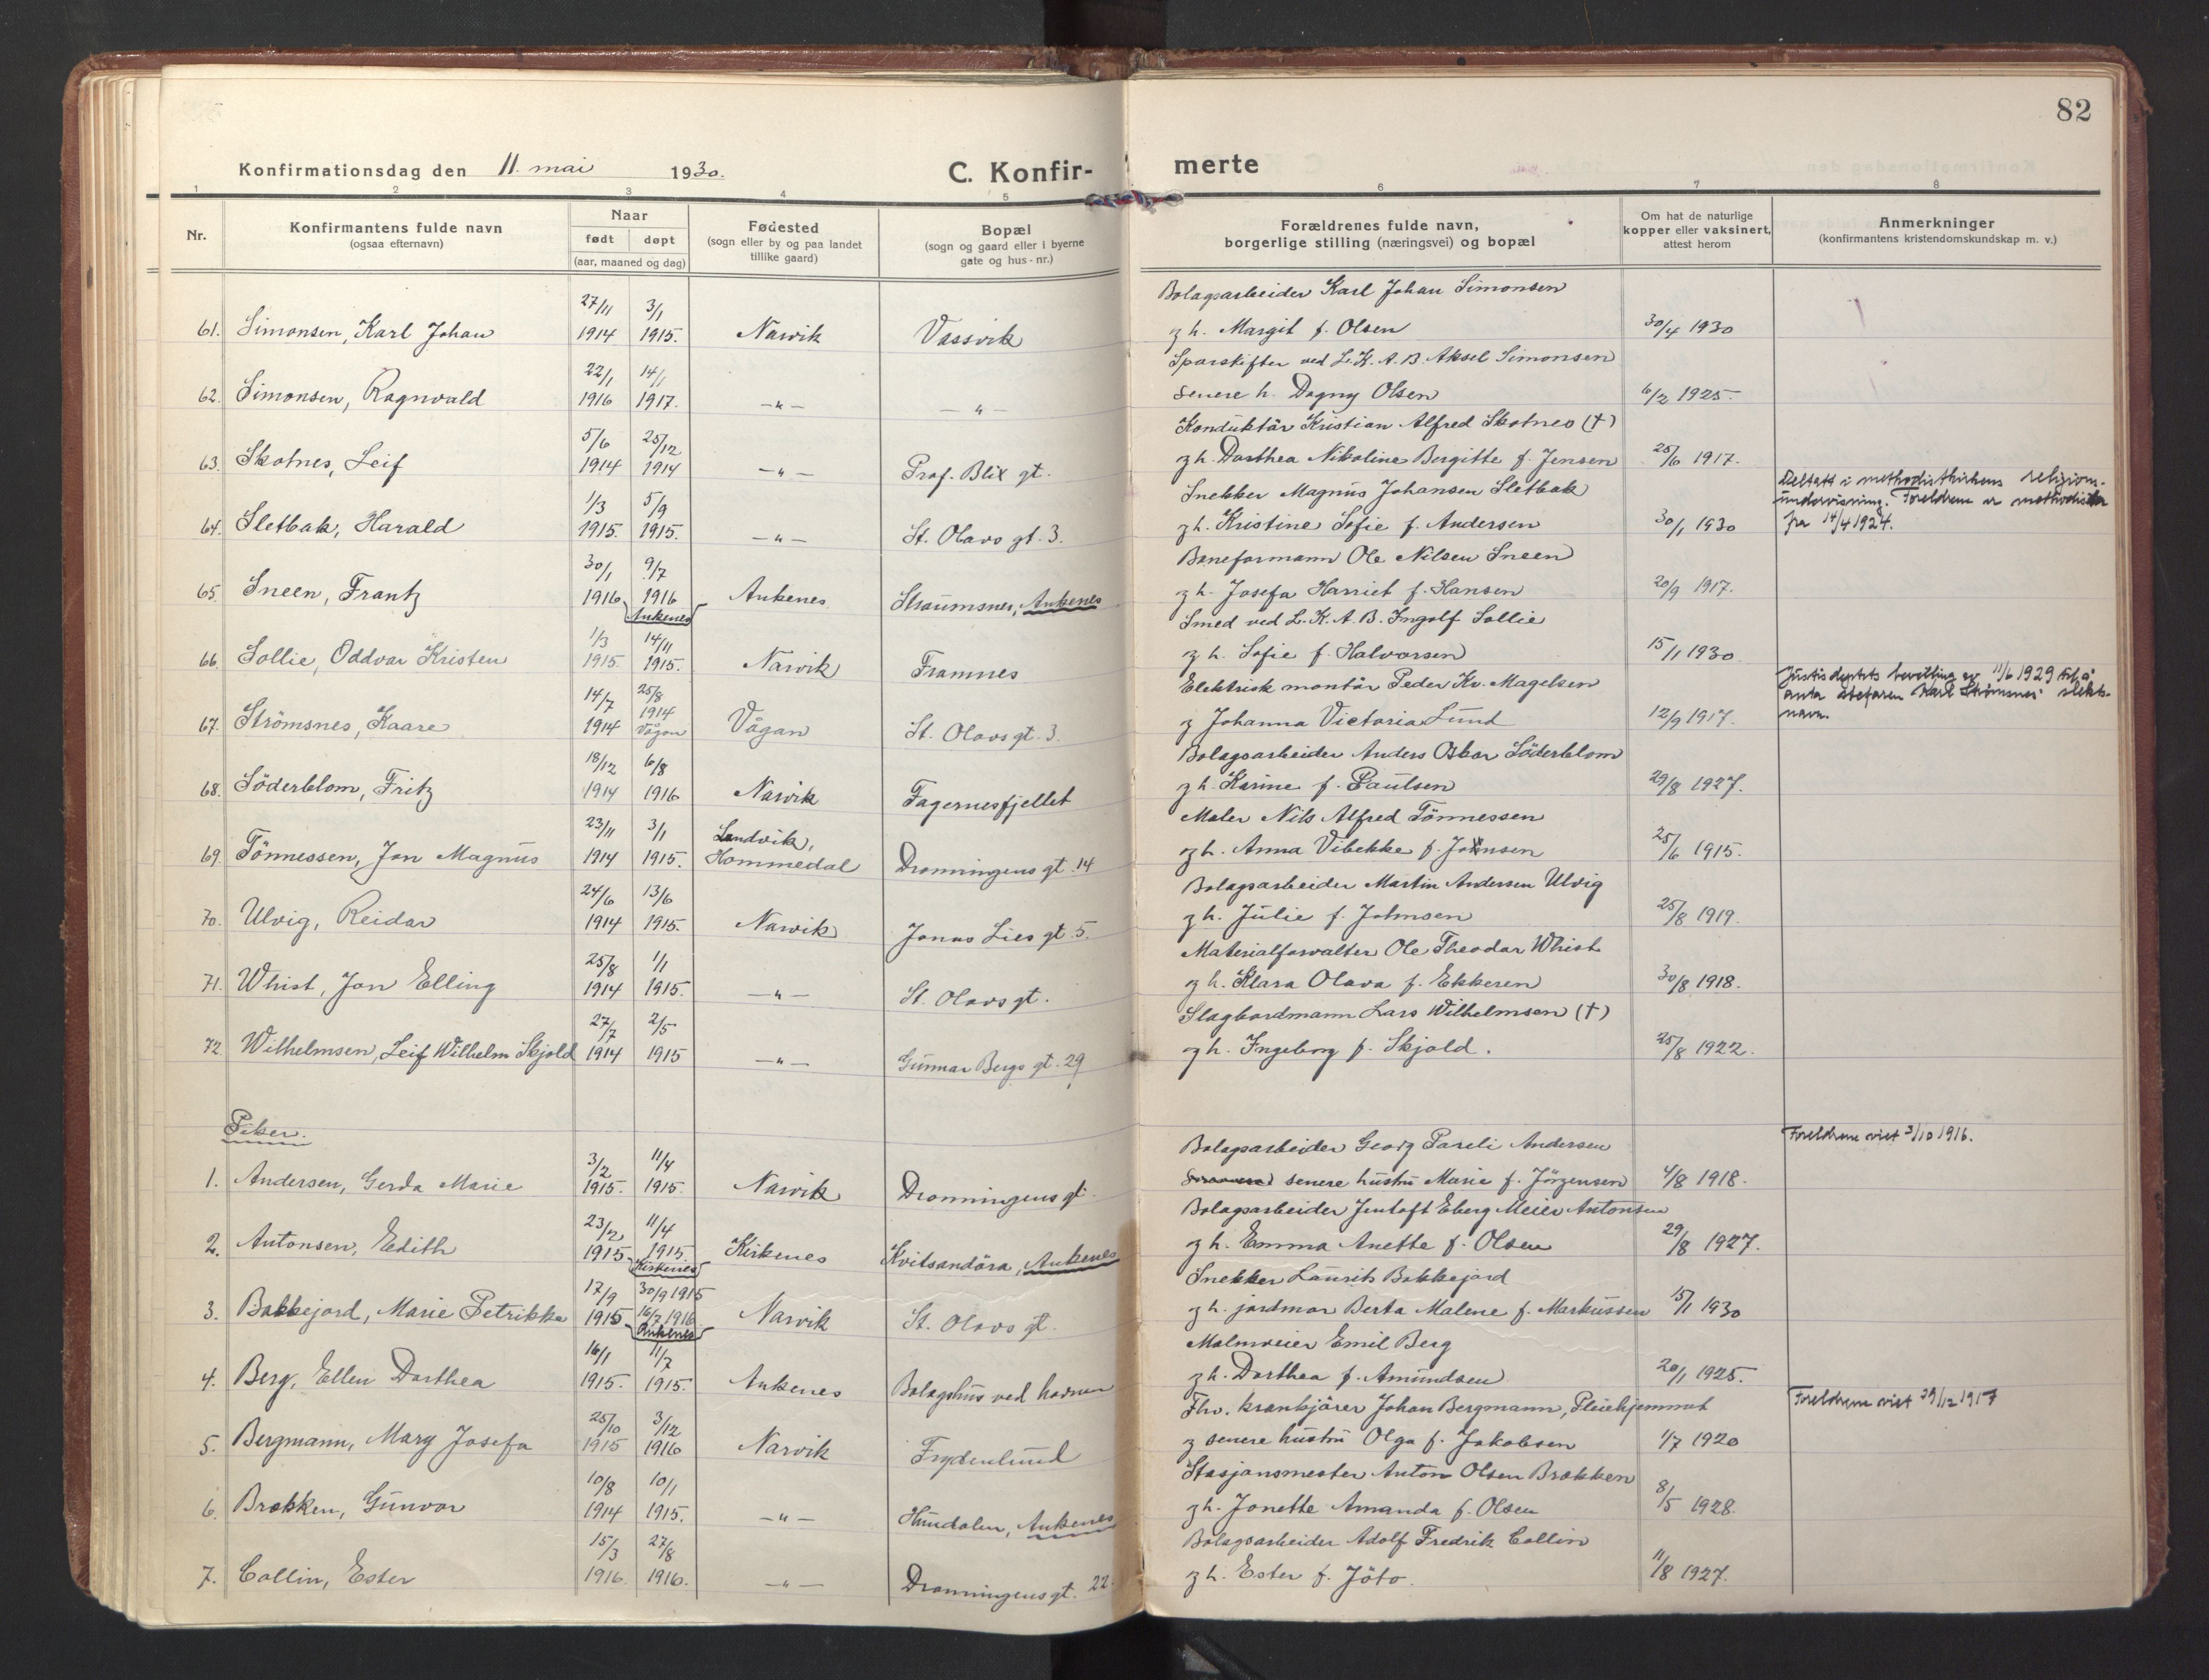 82
Konfirmationsdag den 11. mai 1930. C. Konfir- merte
1 2 3 4 5 6 7 8
Nr.
Konfirmantens fulde navn
(ogsaa efternavn)
Naar
født døpt
(aar, maaned og dag)
Fødested
(sogn eller by og paa landet
tillike gaard)
Bopæl
(sogn og gaard eller i byerne
gate og hus-nr.)
Forældrenes fulde navn,
borgerlige stilling (næringsvei) og bopæl
Om hat de naturlige
kopper eller vaksinert,
attest herom
Anmerkninger
(konfirmantens kristendomskundskap m. v.)
27/11 3/1 Bolagsarbeider Karl Johan Simonsen
61. Simonsen, Karl Johan 1914 1915. Narvik Vassvik g h. Margit f. Olsen 30/4 1930
22/1 14/1 Sporskifter ved L.K.A.B. Aksel Simonsen
62. Simonsen, Ragnvald 1916 1917. —"— —"— senere h. Dagny Olsen 6/2 1925.
5/6 25/12 Konduktör Kristian Alfred Skotnes (†)
63. Skotnes, Leif 1914 1914 —"— Prof. Blix gt. g h. Dorthea Nikoline Bergitte f. Jensen 25/6 1917.
1/3 5/9 Snekker Magnus Johansen Sletbak Deltatt i methodistkirkens religions-
undervisning. Foreldrene er methodister
64. Sletbak, Harald 1915. 1915. —"— St. Olavs gt. 3. g h. Kristine Sofie f. Andersen 30/1 1930 fra 14/4 1924.
30/1 9/7 Baneformann Ole Nilsen Sneen
65. Sneen, Frantz 1916 1916 Ankenes Straumsnes, Ankenes g h. Josefa Harriet f. Hansen 20/9 1917.
Ankenes Smed ved L.K.A.B. Ingolf Sollie
1/3 14/11
66. Sollie, Oddvar Kristen 1915. 1915. Narvik Framnes g h. Sofie f. Halvorsen 15/11 1930
14/7 25/8 1914 Elektrisk montör Peder Kr. Magelsen Justisdeptets bevilling av 11/6 1929 til å
anta stefaren Karl Strömsnes' slekts-
navn.
67. Strömsnes, Kaare 1914 Vågan Vågan St. Olavs gt. 3. g Johanna Victoria Lund 12/9 1917.
18/12 6/8 Bolagsarbeider Anders Oskar Söderblom
68. Söderblom, Fritz 1914 1916 Narvik Fagernesfjellet g h. Karine f. Paulsen 29/8 1927.
23/11 3/1 Landvik, Maler Nils Alfred Tönnessen
69. Tönnessen, Jon Magnus 1914 1915. Hommedal Dronningens gt. 14 g h. Anna Vibekke f. Johnsen 25/6 1915.
24/6 13/6 Bolagsarbeider Martin Andersen Ulvig
70. Ulvig, Reidar 1914 1915. Narvik Jonas Lies gt. 5. g h. Julie f. Johnsen 25/8 1919.
25/8 1/1 Materialforvalter Ole Theodor Whist
71. Whist, Jon Elling 1914 1915. —"— St. Olavs gt. g h. Klara Olava f. Ekkeren 30/8 1918.
27/7 2/5 Slagbordmann Lars Wilhelmsen (†)
72. Wilhelmsen, Leif Wilhelm Skjold 1914 1915 —"— Gunnar Bergs gt. 29 g h. Ingeborg f. Skjold. 25/8 1922.
Piker.
3/2 11/4 Bolagsarbeider Georg Pareli Andersen Foreldrene viet 3/10 1916.
1. Andersen, Gerda Marie 1915. 1915. Narvik Dronningens gt. senere hustru Marie f. Jörgensen 4/8 1918.
23/2 11/4 Bolagsarbeider Jentoft Eberg Meier Antonsen
2. Antonsen, Edith 1915 1915. Kirkenes Kvitsandöra, Ankenes g h. Emma Anette f. Olsen 29/8 1927.
Kirkenes Snekker Laurits Bakkejord
17/9 30/9 1915
3. Bakkejord, Marie Petrikke 1915 16/7 1916 Narvik St. Olavs gt. g h. jordmor Berta Malene f. Markussen 15/1 1930
Ankenes Malmveier Emil Berg
16/1 11/7
4. Berg, Ellen Dorthea 1915. 1915. Ankenes Bolagshus ved havnen g h. Dorthea f. Amundsen 20/1 1925.
25/10 3/12 Fhv. krankjörer Johan Bergmann, Pleiehjemmet Foreldrene viet 29/12 1917
5. Bergmann, Mary Josefa 1915 1916 Narvik Frydenlund g senere hustru Olga f. Jakobsen 1/7 1920
10/8 10/1 Stasjonsmester Anton Olsen Brekken
6. Brekken, Gunvor 1914 1915. —"— Hundalen, Ankenes g h. Jonette Amanda f. Olsen 8/5 1928.
15/3 27/8 Bolagsarbeider Adolf Fredrik Collin
7. Collin, Ester 1916. 1916. —"— Dronningens gt. 22. g h. Ester f. Jöto. 11/8 1927.